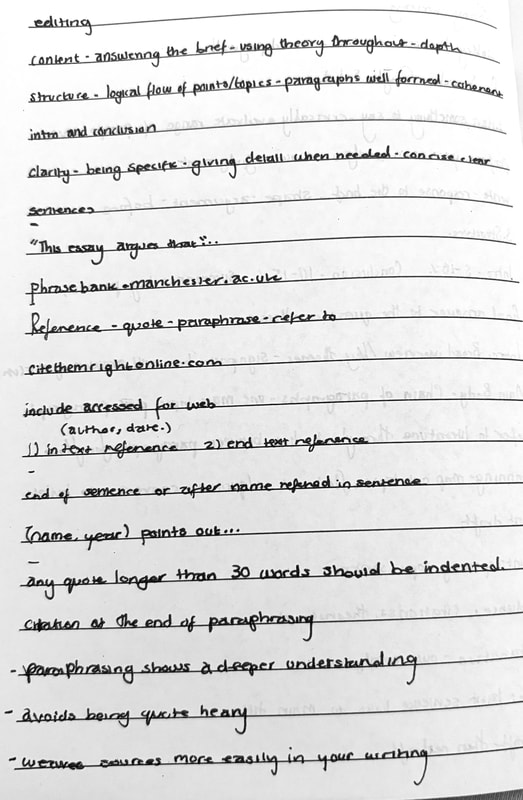 editing
content - answering the brief - using theory throughout - depth
structure - logical flow of points/topics - paragraphs well formed - coherent
intro and conclusion
clarity - being specific - giving detail when needed - concise clear
sentences
-
"This essay argues that"...
phrasebank.manchester.ac.uk
Reference - quote - paraphrase - refer to
citethemrightonline.com
include accessed for web
(author, date.)
1) in text reference 2) end text reference
-
end of sentence or after name refured in sentence
(name, year) points out...
-
any quote longer than 30 words should be indented.
citation at the end of paraphrasing
- paraphrasing shows a deeper understanding
- avoids being quote heavy
- weaves sources more easily in your writing